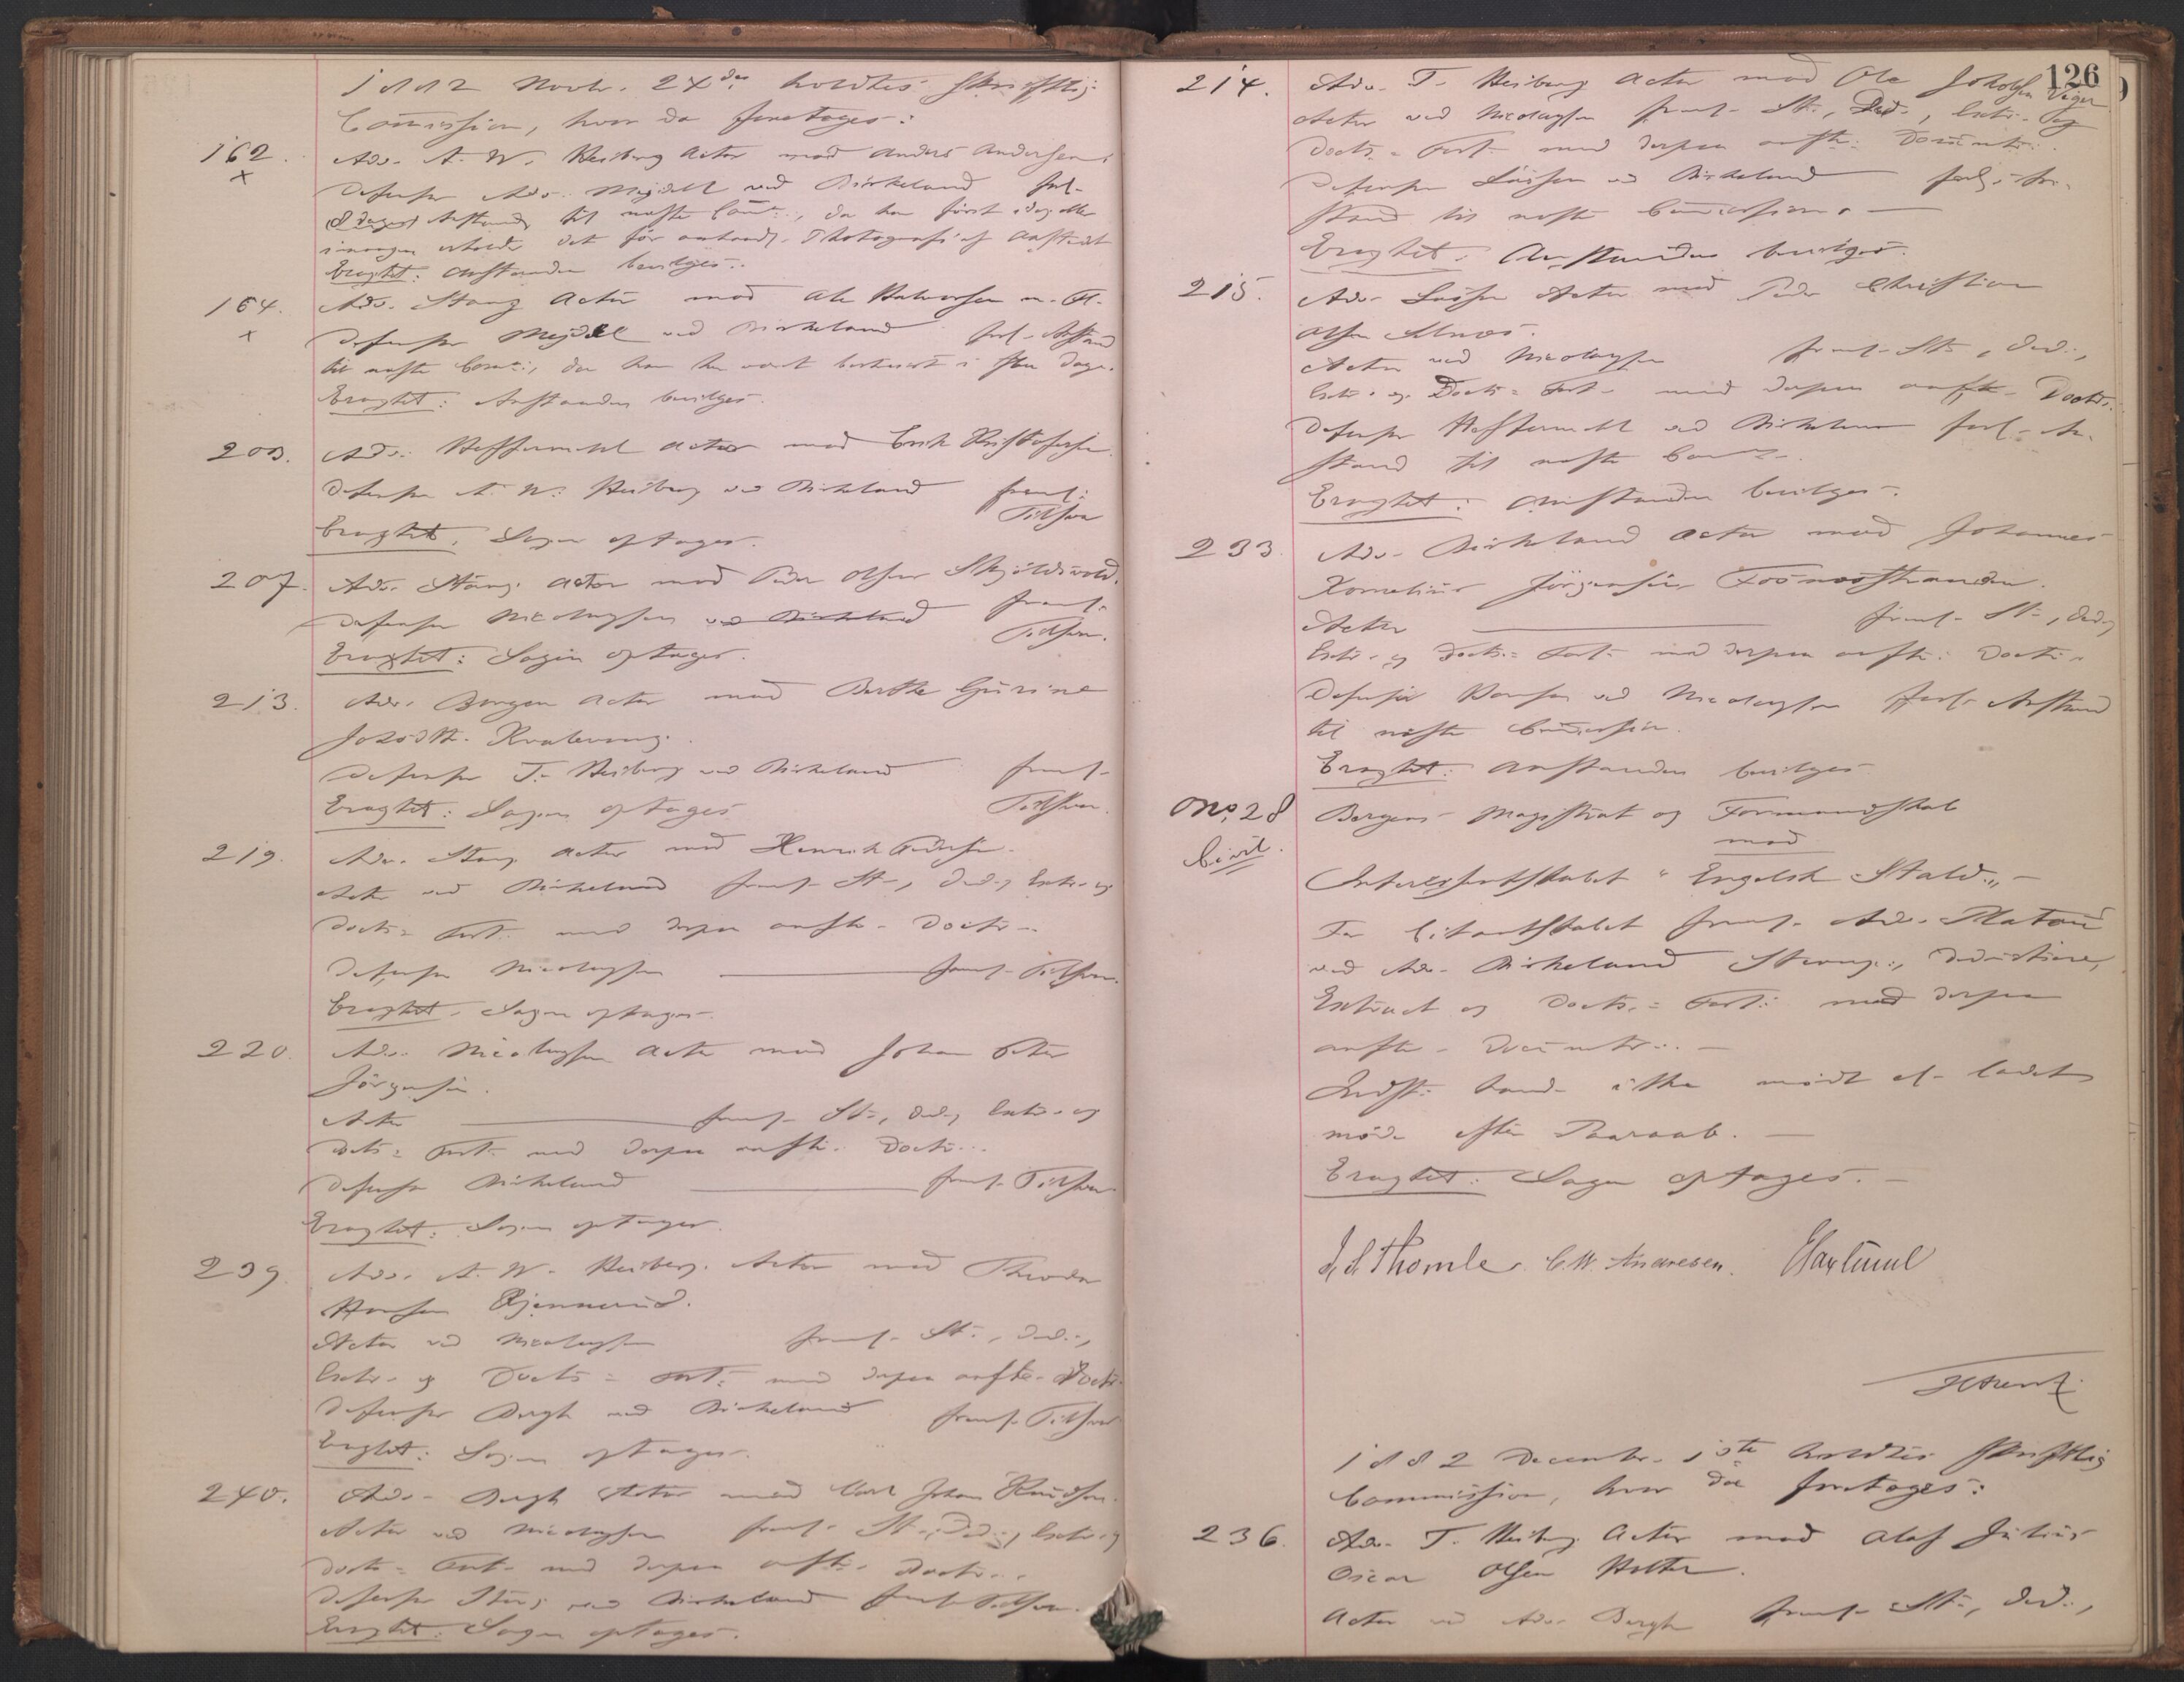 1882 Novbr. 24de holdtes Skriftlig
Commission, hvor da foretoges:
162. Adv. A. W. Heiberg Actor mod Anders Andersen
x
Defensor Adv. Mejdell ved Birkeland forl.
8 Dages Anstand til næste Comm:, da han først idag eller
imorgen erholder det Photografi af
Eragtet: Anstanden bevilges.
164. Adv. Stang Actor mod Ole Halvorsen m. Fl.
x
Defensor Mejdell ved Birkeland forl. Anstand
til næste Comm:, da han har været i Dage.
Eragtet: Anstanden bevilges.
203. Adv. Heffermehl Actor mod Erik Kristofersen
Defensor A. W. Heiberg ved Birkeland freml:
Tilsvar
Eragtet: Sagen optages.
207. Adv. Stang Actor mod Peder Olsen Skjöldsvold.
Defensor Nicolaysen ved Birkeland freml.
Tilsvar.
Eragtet: Sagen optages.
213. Adv. Bergh Actor mod Berthe Gurine
Defensor T. Heiberg ved Birkeland freml.
Eragtet: Sagen optages Tilsvar.
219. Adv. Stang Actor mod Henrik Pedersen.
Actor ved Birkeland freml. St:, Ded:, Extr: og
Docts: Fort. med derpaa anfte. Docts.
Defensor Nicolaysen freml. Tilsvar.
Eragtet: Sagen optages.
220. Adv. Nicolaysen Actor mod Johan Peter
Jörgensen.
Actor freml. St:, Ded:, Extr: og
Docts: Fort. med derpaa anfte. Docts.
Defensor Birkeland freml. Tilsvar.
Eragtet: Sagen optages.
239. Adv. A. W. Heiberg Actor mod Theodor
Hansen Gjennerud.
Actor ved Nicolaysen freml. St:, Ded:,
Extr: og Docts: Fort: med derpaa anfte. Docts.
Defensor Bergh ved Birkeland freml. Tilsvar
Eragtet: Sagen optages.
240. Adv. Bergh Actor mod Carl Johan Knudsen.
Actor ved Nicolaysen freml. St:, Ded:, Extr: og
Docts: Fort. med derpaa anfte. Docts.
Defensor Stang ved Birkeland freml. Tilsvar.
Eragtet: Sagen optages.
126
214. Adv. T. Heiberg Actor mod Ole
Actor ved Nicolaysen freml. St:, Ded:, Extr: og
Docts: Fort. med derpaa anfte: Documtr.
Defensor Lassen ved Birkeland forl. An-
stand til næste Commission.
Eragtet: Anstanden bevilges.
215. Adv. Lassen Actor mod Peder Christian
Olsen
Actor ved Nicolaysen freml. St:, Ded:,
Extr: og Docts: Fort. med derpaa anfte. Docts.
Defensor Heffermehl ved Birkeland forl. An-
stand til næste Comm.
Eragtet: Anstanden bevilges.
233. Adv. Birkeland Actor mod Johannes
Kornelius Jörgensen Foosnæsstranden.
Actor freml. St:, Ded:,
Extr: og Docts: Fort. med derpaa anfte: Docts.
Defensor Hansen ved Nicolaysen forl. Anstand
til næste Commission.
Eragtet: Anstanden bevilges
No. 28 Bergens Magistrat og Formandskab
Civil. mod
Interessentskabet "Engelsk Stald".
For Citantskabet freml. Adv. Platou
ved Adv. Birkeland Stevng:, Deduction,
Extract og Docts: Fort: med derpaa
anfte. Documtr.
Indst: havde ikke mödt el. ladet
möde efter Paaraab.
Eragtet: Sagen optages.
J. S. Thomle. C. W. Andresen.
1882 Decembr. 1ste holdtes Skriftlig
Commission, hvor da foretoges:
236. Adv. T. Heiberg Actor mod Olaf Julius
Oscar Olsen Holter.
Actor ved Adv. Bergh freml. St:, Ded:,